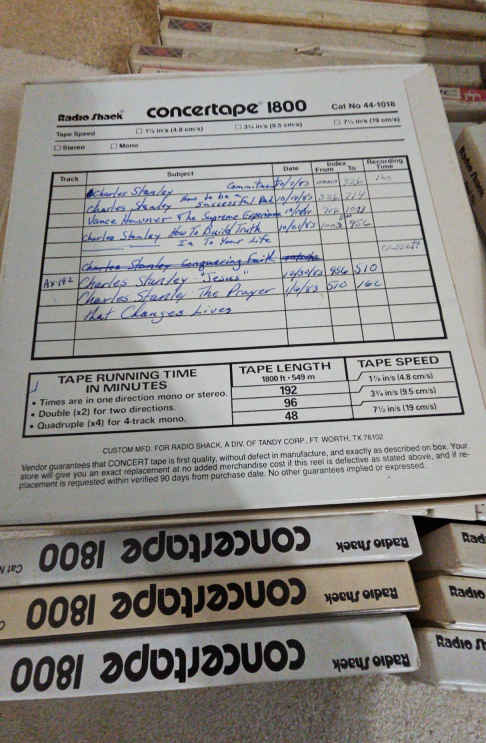 Radio Shack concertape® 1800 Cat No 44-1018
Tape Speed □ 1⅞ in/s (4.8 cm/s) □ 3¾ in/s (9.5 cm/s) □ 7½ in/s (19 cm/s)
□ Stereo □ Mono
Track Subject Date Index From To Recording Time
Charles Stanley
Charles Stanley How to be a Successful Dad
Vance Havner The Supreme
Charles Stanley How To Build Truth 956
In To Your Life
Charles Stanley Conquering Faith
Charles Stanley "Jesus" 956 510
Charles Stanley The Prayer 510
that Changes Lives
TAPE RUNNING TIME
IN MINUTES
• Times are in one direction mono or stereo.
• Double (x2) for two directions.
• Quadruple (x4) for 4-track mono.
TAPE LENGTH
1800 ft • 549 m
192
96
48
TAPE SPEED
1⅞ in/s (4.8 cm/s)
3¾ in/s (9.5 cm/s)
7½ in/s (19 cm/s)
CUSTOM MFD. FOR RADIO SHACK, A DIV. OF TANDY CORP., FT. WORTH, TX 76102
Vendor guarantees that CONCERT tape is first quality, without defect in manufacture, and exactly as described on box. Your
store will give you an exact replacement at no added merchandise cost if this reel is defective as stated above, and if re-
placement is requested within verified 90 days from purchase date. No other guarantees implied or expressed.
Radio Shack concertape 1800 Cat N
Radio Shack concertape 1800
Radio Shack concertape 1800
Rad
Radio
Radio Sh